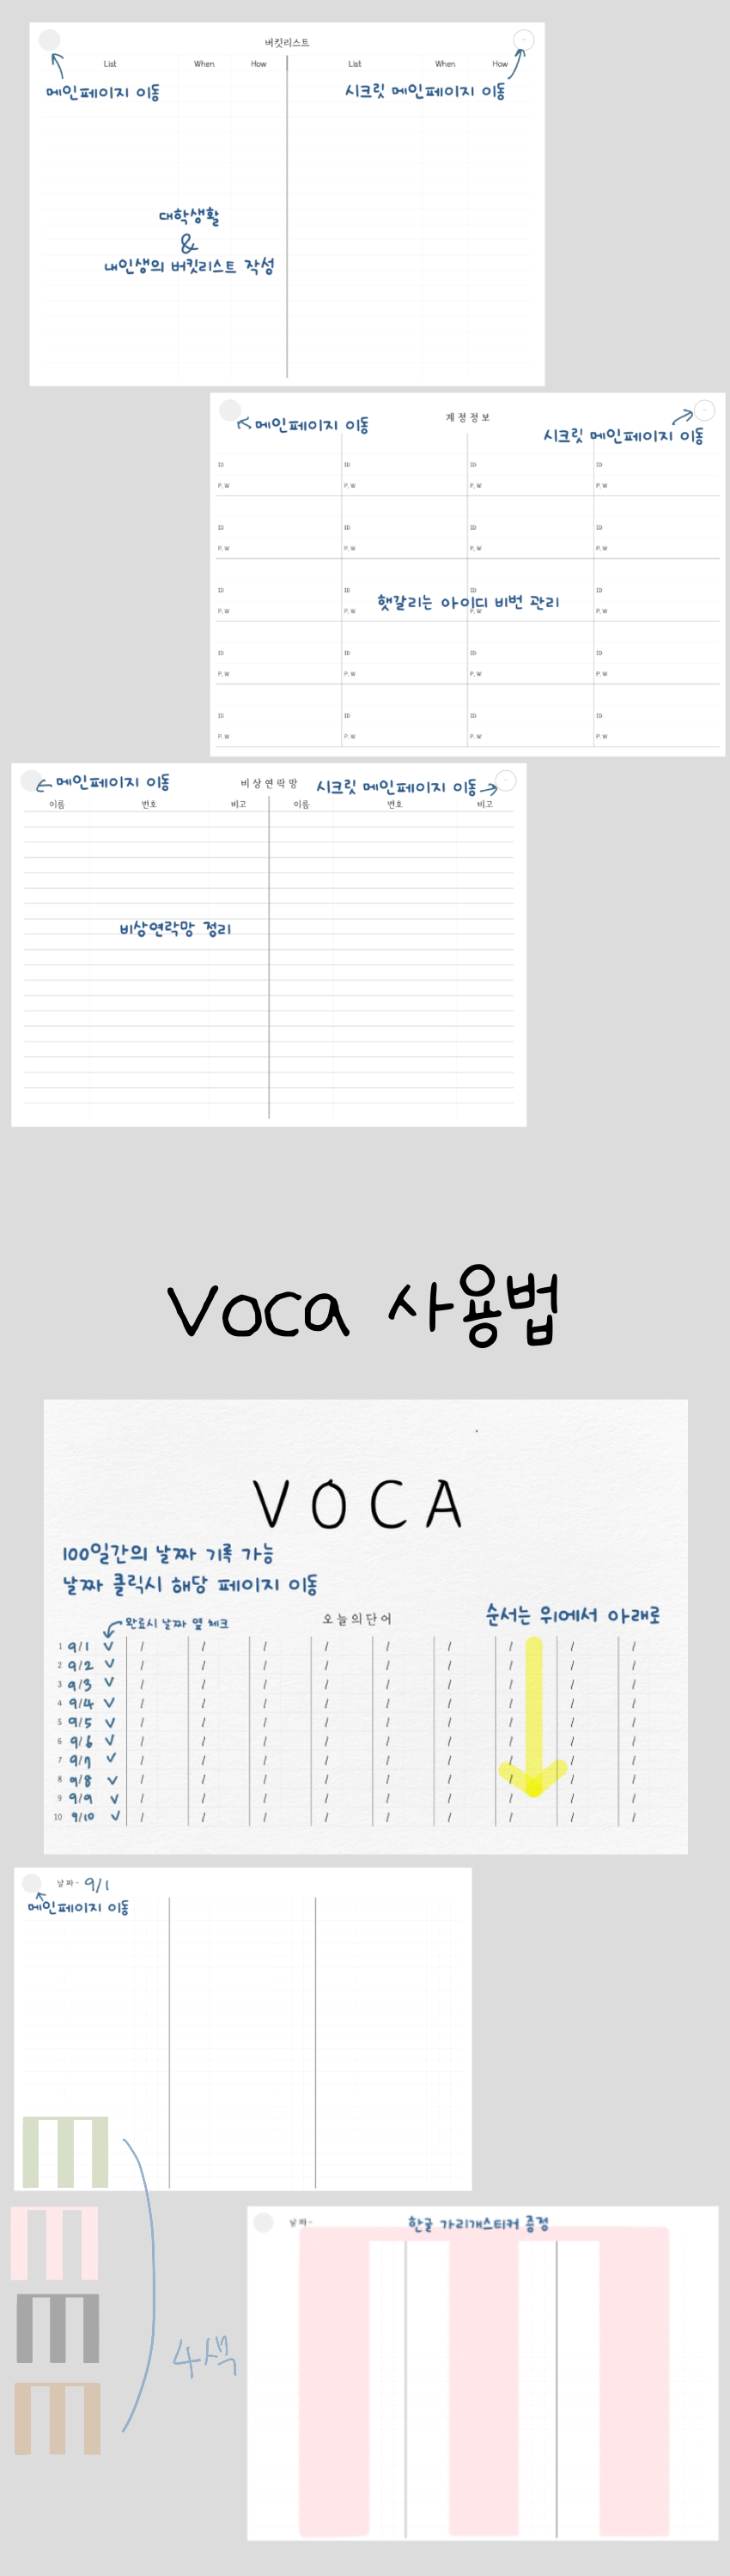 버킷리스트
List When How List When How
메인페이지 이동
시크릿 메인페이지 이동
대학생활
&
내인생의 버킷리스트 작성
계정정보
메인페이지 이동
시크릿 메인페이지 이동
ID ID ID ID
P.W P.W P.W P.W
ID ID ID ID
P.W P.W P.W P.W
ID ID ID ID
햇갈리는 아이디 비번 관리
P.W P.W P.W P.W
ID ID ID ID
P.W P.W P.W P.W
ID ID ID ID
P.W P.W P.W P.W
메인페이지 이동
비상연락망
시크릿 메인페이지 이동
이름 번호 비고 이름 번호 비고
비상연락망 정리
Voca 사용법
VOCA
100일간의 날짜 기록 가능
날짜 클릭시 해당 페이지 이동
완료시 날짜 옆 체크
오늘의단어
순서는 위에서 아래로
1 9/1 V / / / / / / / / /
2 9/2 V / / / / / / / / /
3 9/3 V / / / / / / / / /
4 9/4 V / / / / / / / / /
5 9/5 V / / / / / / / / /
6 9/6 V / / / / / / / / /
7 9/7 V / / / / / / / / /
8 9/8 V / / / / / / / / /
9 9/9 V / / / / / / / / /
10 9/10 V / / / / / / / / /
날짜- 9/1
메인페이지 이동
4색
날짜-
한글 가리개스티커 증정